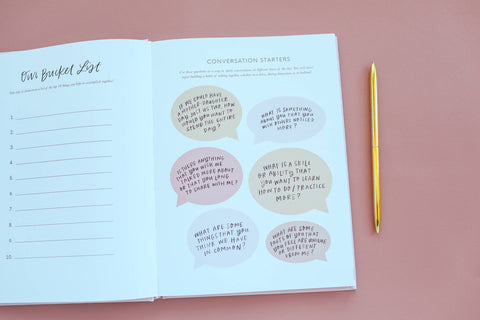 Our Bucket List
1.
2.
3.
4.
5.
6.
7.
8.
9.
10.
CONVERSATION STARTERS
IF WE COULD HAVE
A MOTHER-DAUGHTER
DAY, JUST US TWO, HOW
WOULD YOU WANT TO
SPEND THE ENTIRE
DAY?
WHAT IS SOMETHING
ABOUT YOU THAT YOU
WISH OTHERS NOTICED
MORE?
IS THERE ANYTHING
THAT YOU WISH WE
TALKED MORE ABOUT
OR THAT YOU LONG
TO SHARE WITH ME?
WHAT IS A SKILL
OR ABILITY THAT
YOU WANT TO LEARN
HOW TO DO/PRACTICE
MORE?
WHAT ARE SOME
THINGS THAT YOU
THINK WE HAVE
IN COMMON?
WHAT ARE SOME
PARTS OF YOU THAT
YOU FEEL ARE UNIQUE
OR DIFFERENT
FROM ME?